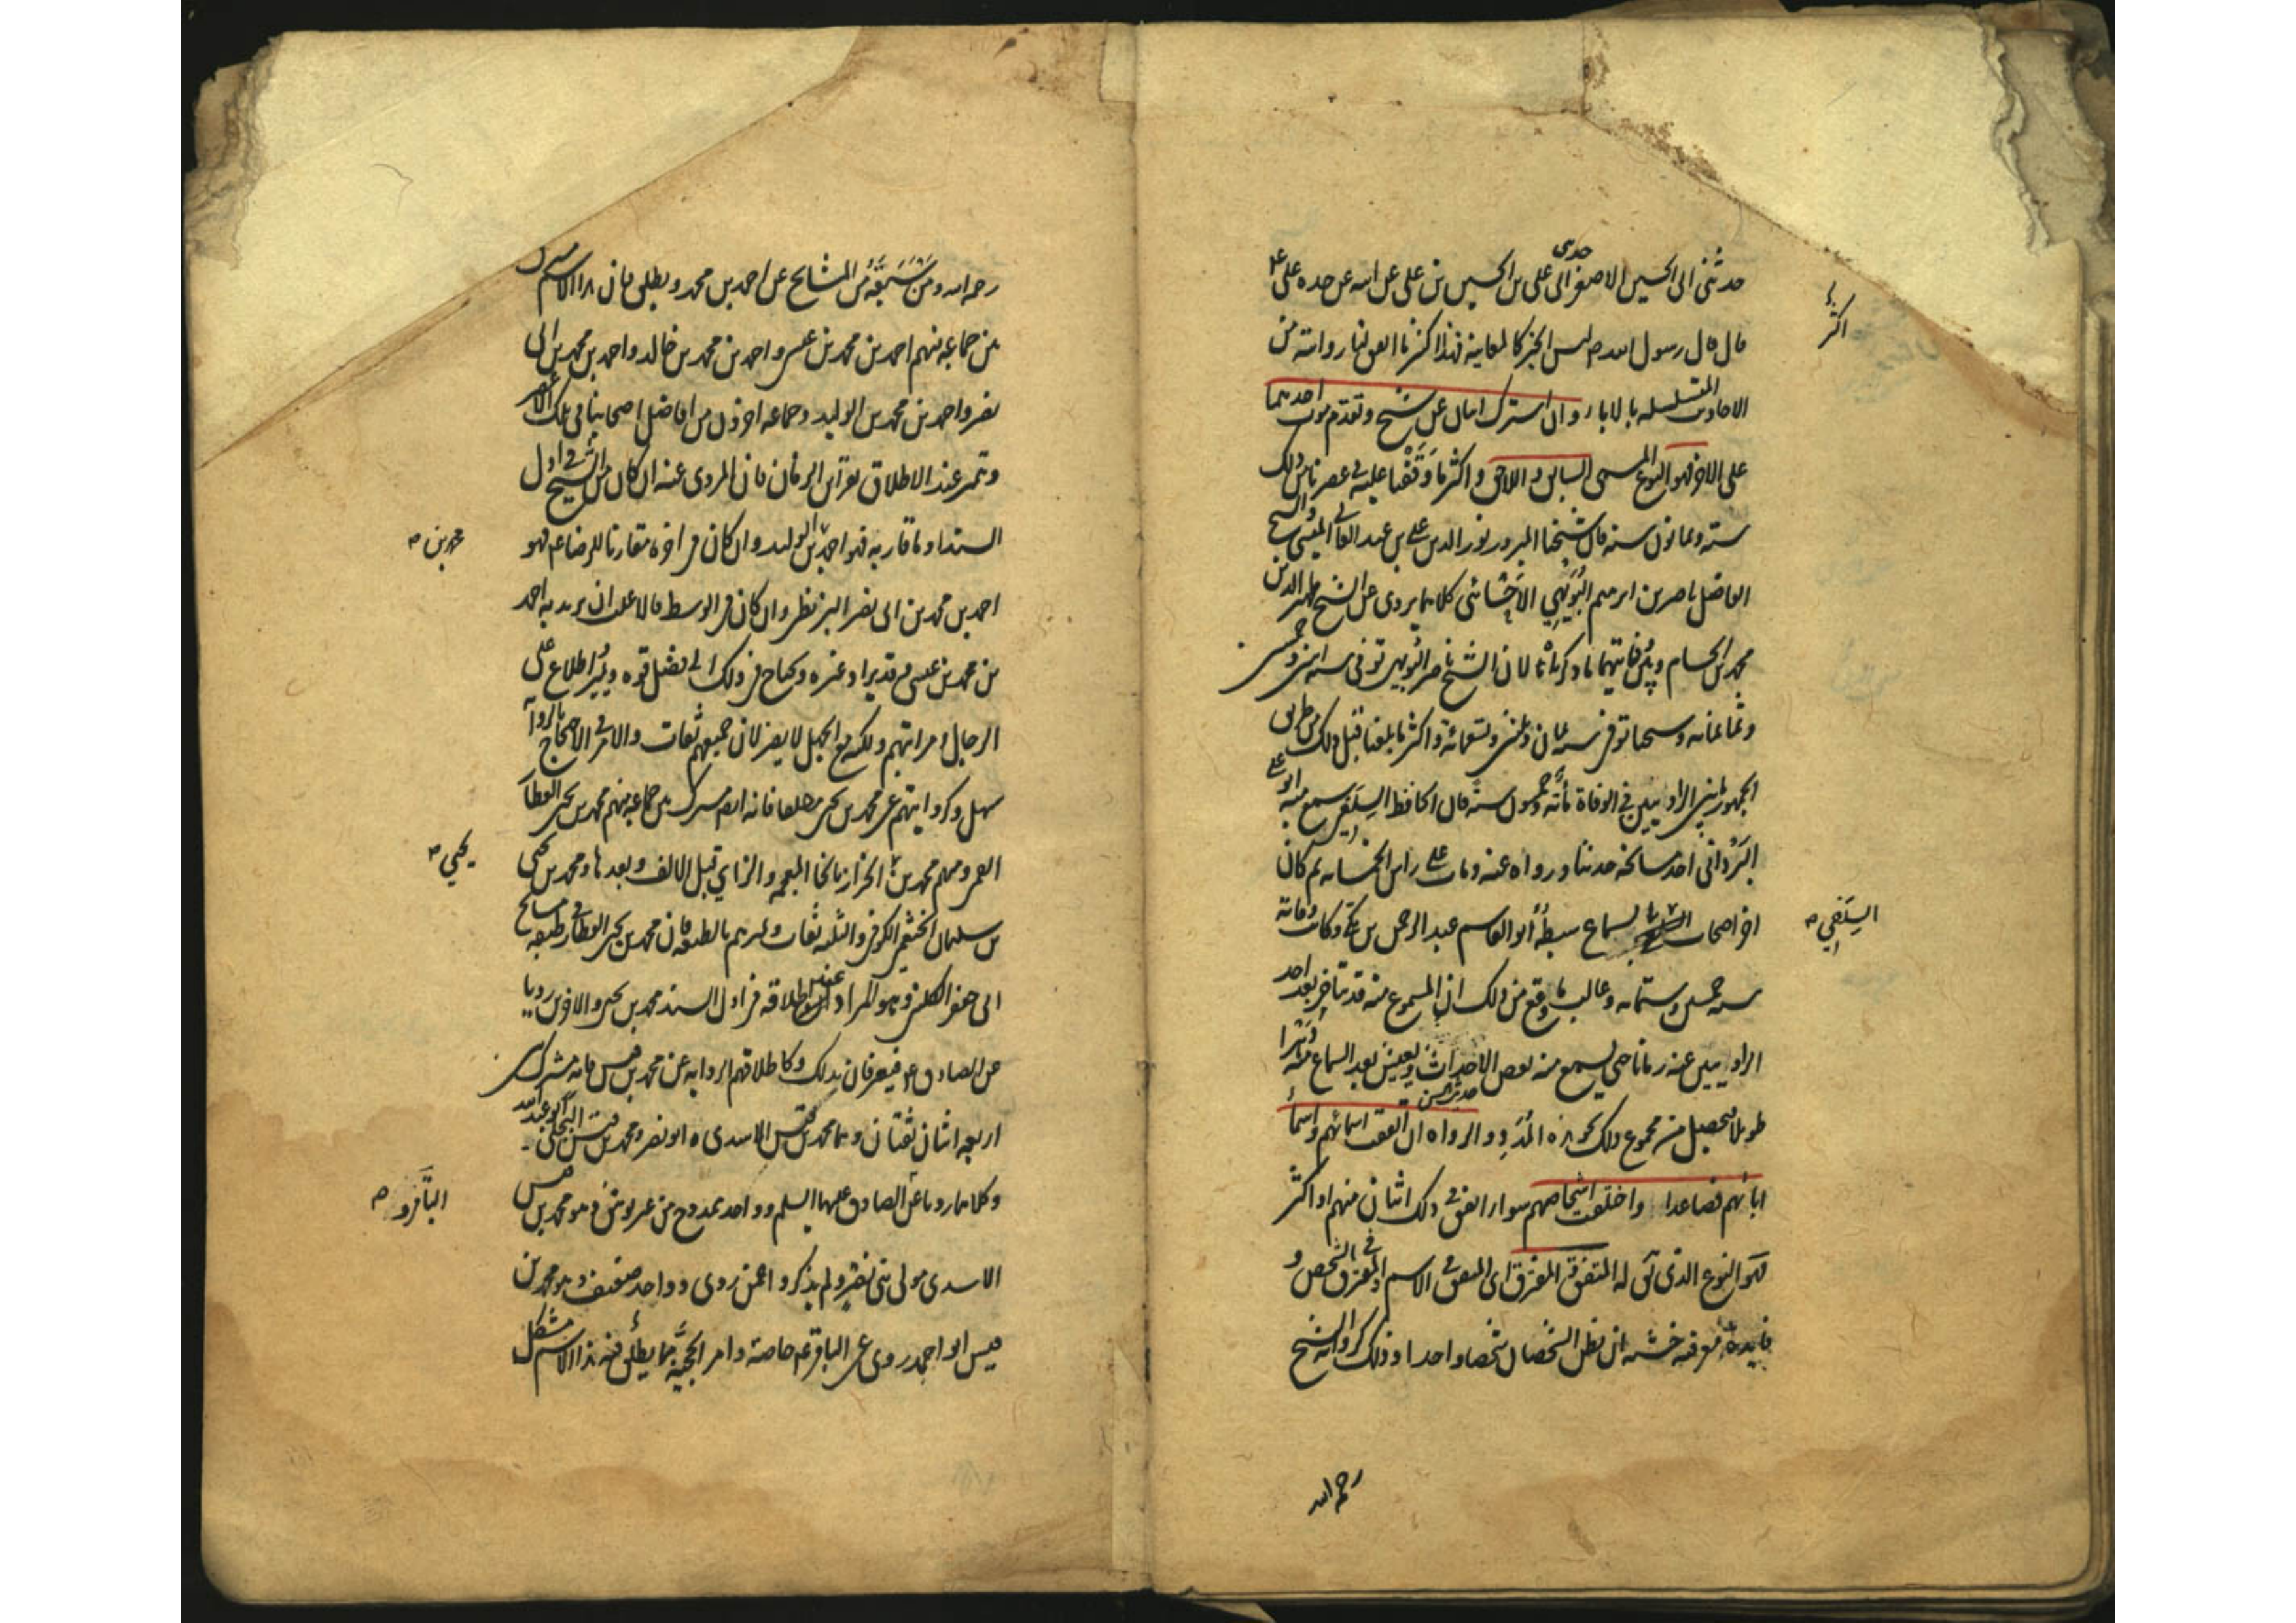 حدثنى ابى الحسين الاصغر حدثنى ابى على بن الحسين بن على عن ابيه عن جده على ع
قال قال رسول الله ص ليس الخبر كالمعاينة فهذا اكثر ما اتفق لنا روايته من
الاحاديث المتسلسله بالاباء وان اشترك اثنان عن شيخ وتقدم موت احدهما
على الاخر فهو النوع المسمى السابق واللاحق واكثر ما وقفنا عليه فى عصرنا من ذلك
ستة وثمانون سنة فان شيخنا المبرور نور الدين على بن عبد العالى الميسى والشيخ
الفاضل ناصر بن ابرهيم البويهى الاحسائى كلاهما يروى عن الشيخ ظهير الدين
محمد بن الحسام وبين وفاتيهما ما ذكرناه لان الشيخ ناصر البويهى توفى سنة اثنين وخمسين
وثمانمائه وشيخنا توفى سنة ثمان وثلثين وتسعمائة واكثر ما بلغنا قبل ذلك من طريق
الجمهور ما بين الراويين فى الوفاة مأئة وخمسون سنة فان الحافظ السلفى سمع منه ابو على
البردانى احد مشايخه حديثا ورواه عنه ومات على راس الخمسمائه ثم كان
اخر اصحاب السلفى بالسماع سبطه ابو القاسم عبد الرحمن بن مكى وكانت وفاته
سنة خمسين وستمائه وغالب ما يقع من ذلك ان المسموع منه قد يتاخر بعد احد
الراويين عنه زمانا حتى يسمع منه بعض الاحداث ويعيش بعد السماع منه دهرا
طويلا فيحصل من مجموع ذلك نحو هذه المدة والرواة ان اتفقت اسمائهم واسمأ
ابائهم فصاعدا واختلفت اشخاصهم سواء اتفق فى ذلك اثنان منهم او اكثر
فهو النوع الذى يق له المتفق المفترق اى المتفق فى الاسم والمفترق فى الشخص و
فايدة معرفته خشية ان يظن الشخصان شخصا واحدا وذلك كرواية الشيخ
رحمه الله
اكثر
السلفى ص
رحمه الله ومن سبقه من المشايخ عن احمد بن محمد ويطلق فان هذا الاسم مشترك
بين جماعه منهم احمد بن محمد بن عيسى واحمد بن محمد بن خالد واحمد بن محمد بن ابى
نصر واحمد بن محمد بن الوليد وجماعه اخرون من افاضل اصحابنا فى تلك الاعصار
ويتميز عند الاطلاق بقراين الزمان فان المروى عنه ان كان من الشيخ فى اول
السند او ما قاربه فهو احمد بن الوليد وان كان فى اخره مقارنا للرضا ع فهو
احمد بن محمد بن ابى نصر البزنطى وان كان فى الوسط فالاغلب ان يريد به احمد
بن محمد بن عيسى وقد يراد غيره ويحتاج فى ذلك الى فضل قوة وتميز واطلاع على
الرجال ومراتبهم ولكنه مع الجهل لا يضر لان جميعهم ثقات والامر فى الاحتجاج بالرواية
سهل وكروايتهم عن محمد بن يحيى مطلقا فانه ايضا مشترك بين جماعه منهم محمد بن يحيى العطار
القمى ومنهم محمد بن الخزاز بالخا المعجمه والزاى قبل الالف وبعدها ومحمد بن يحيى
بن سليمان الخثعمى الكوفى والثلثه ثقات وتميزهم بالطبقه فان محمد بن يحيى العطار فى طبقه مشايخ
ابى جعفر الكلينى فهو المراد عند اطلاقه فى اول السند محمد بن يحيى والاخرين رويا
عن الصادق ع فيعرفان بذلك وكاطلاقهم الرواية عن محمد بن قيس فانه مشترك بين
اربعه اثنان ثقتان وهما محمد بن قيس الاسدى ابو نصر ومحمد بن قيس البجلى ابو عبد الله
وكلاهما رويا عن الصادق عليهما السلم وواحد ممدوح من غير توثيق وهو محمد بن قيس
الاسدى مولى بنى نصر ولم يذكروا عمن روى وواحد ضعيف وهو محمد بن
قيس ابو احمد روى عن الباقر ع خاصة وامر الحجية بما يطلق فيه هذا الاسم مشكل
محمد بن ص
يحيى ص
الباقر و ص